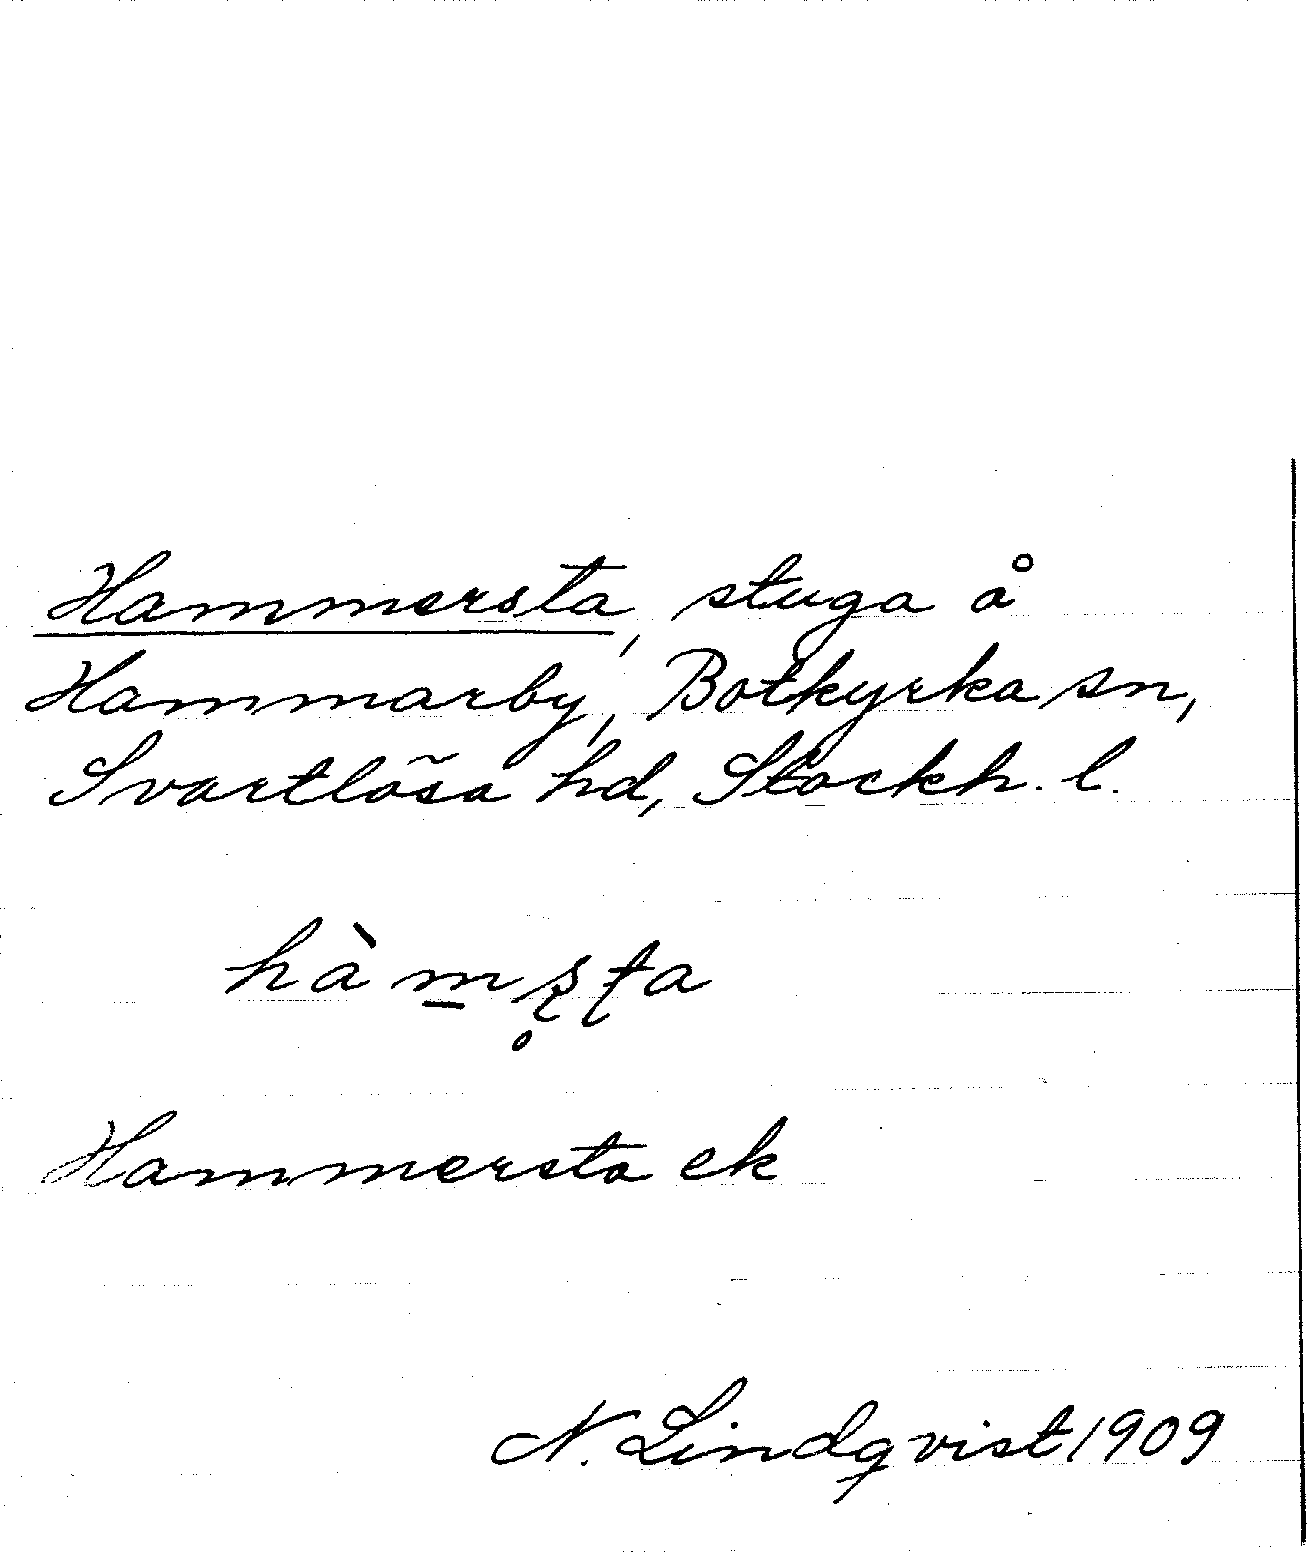 Hammersta, stuga å
Hammarby, Botkyrka sn,
Svartlösa hd, Stockh. l.
hàm̠ʂ̥ʈa
Hammersta ek
N. Lindqvist 1909